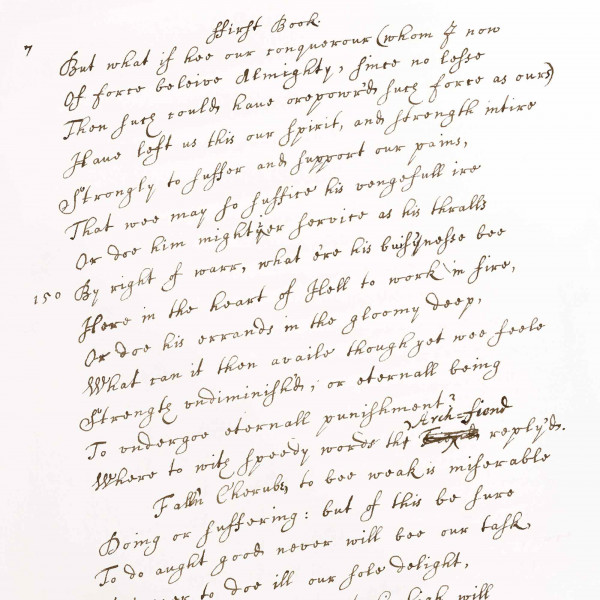 7
ffirst Book.
But what if hee our conquerour (whom I now
Of force beleive Almighty, since no lesse
Then such could have orepow'rd such force as ours)
Have left us this our spirit, and strength intire
Strongly to suffer and support our pains,
That wee may so suffice his vengefull ire
Or doe him mightyer service as his thralls
150 By right of warr, what e're his busynesse bee
Here in the heart of Hell to work in fire,
Or doe his errands in the gloomy deep,
What can it then availe though yet wee feele
Strength undiminisht, or eternall being
To undergoe eternall punishment?
Where to with speedy words the Arch-fiend reply'd.
Fall'n Cherub, to bee weak is miserable
Doing or suffering: but of this be sure
To do aught good never will bee our task
to doe ill our sole delight,
will